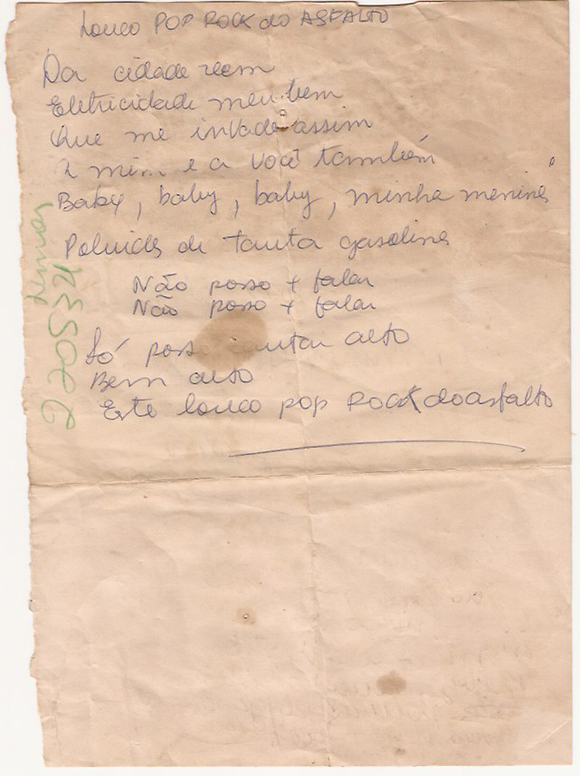 Louco POP ROCK do ASFALTO
Da cidade vem
Eletricidade meu bem
Que me invade assim
A mim e a você também
Baby, baby, baby, minha menina
Poluida de tanta gasolina
Não posso + falar
Não posso + falar
Só posso cantar alto
Bem alto
Este louco pop ROCK do asfalto
2205321